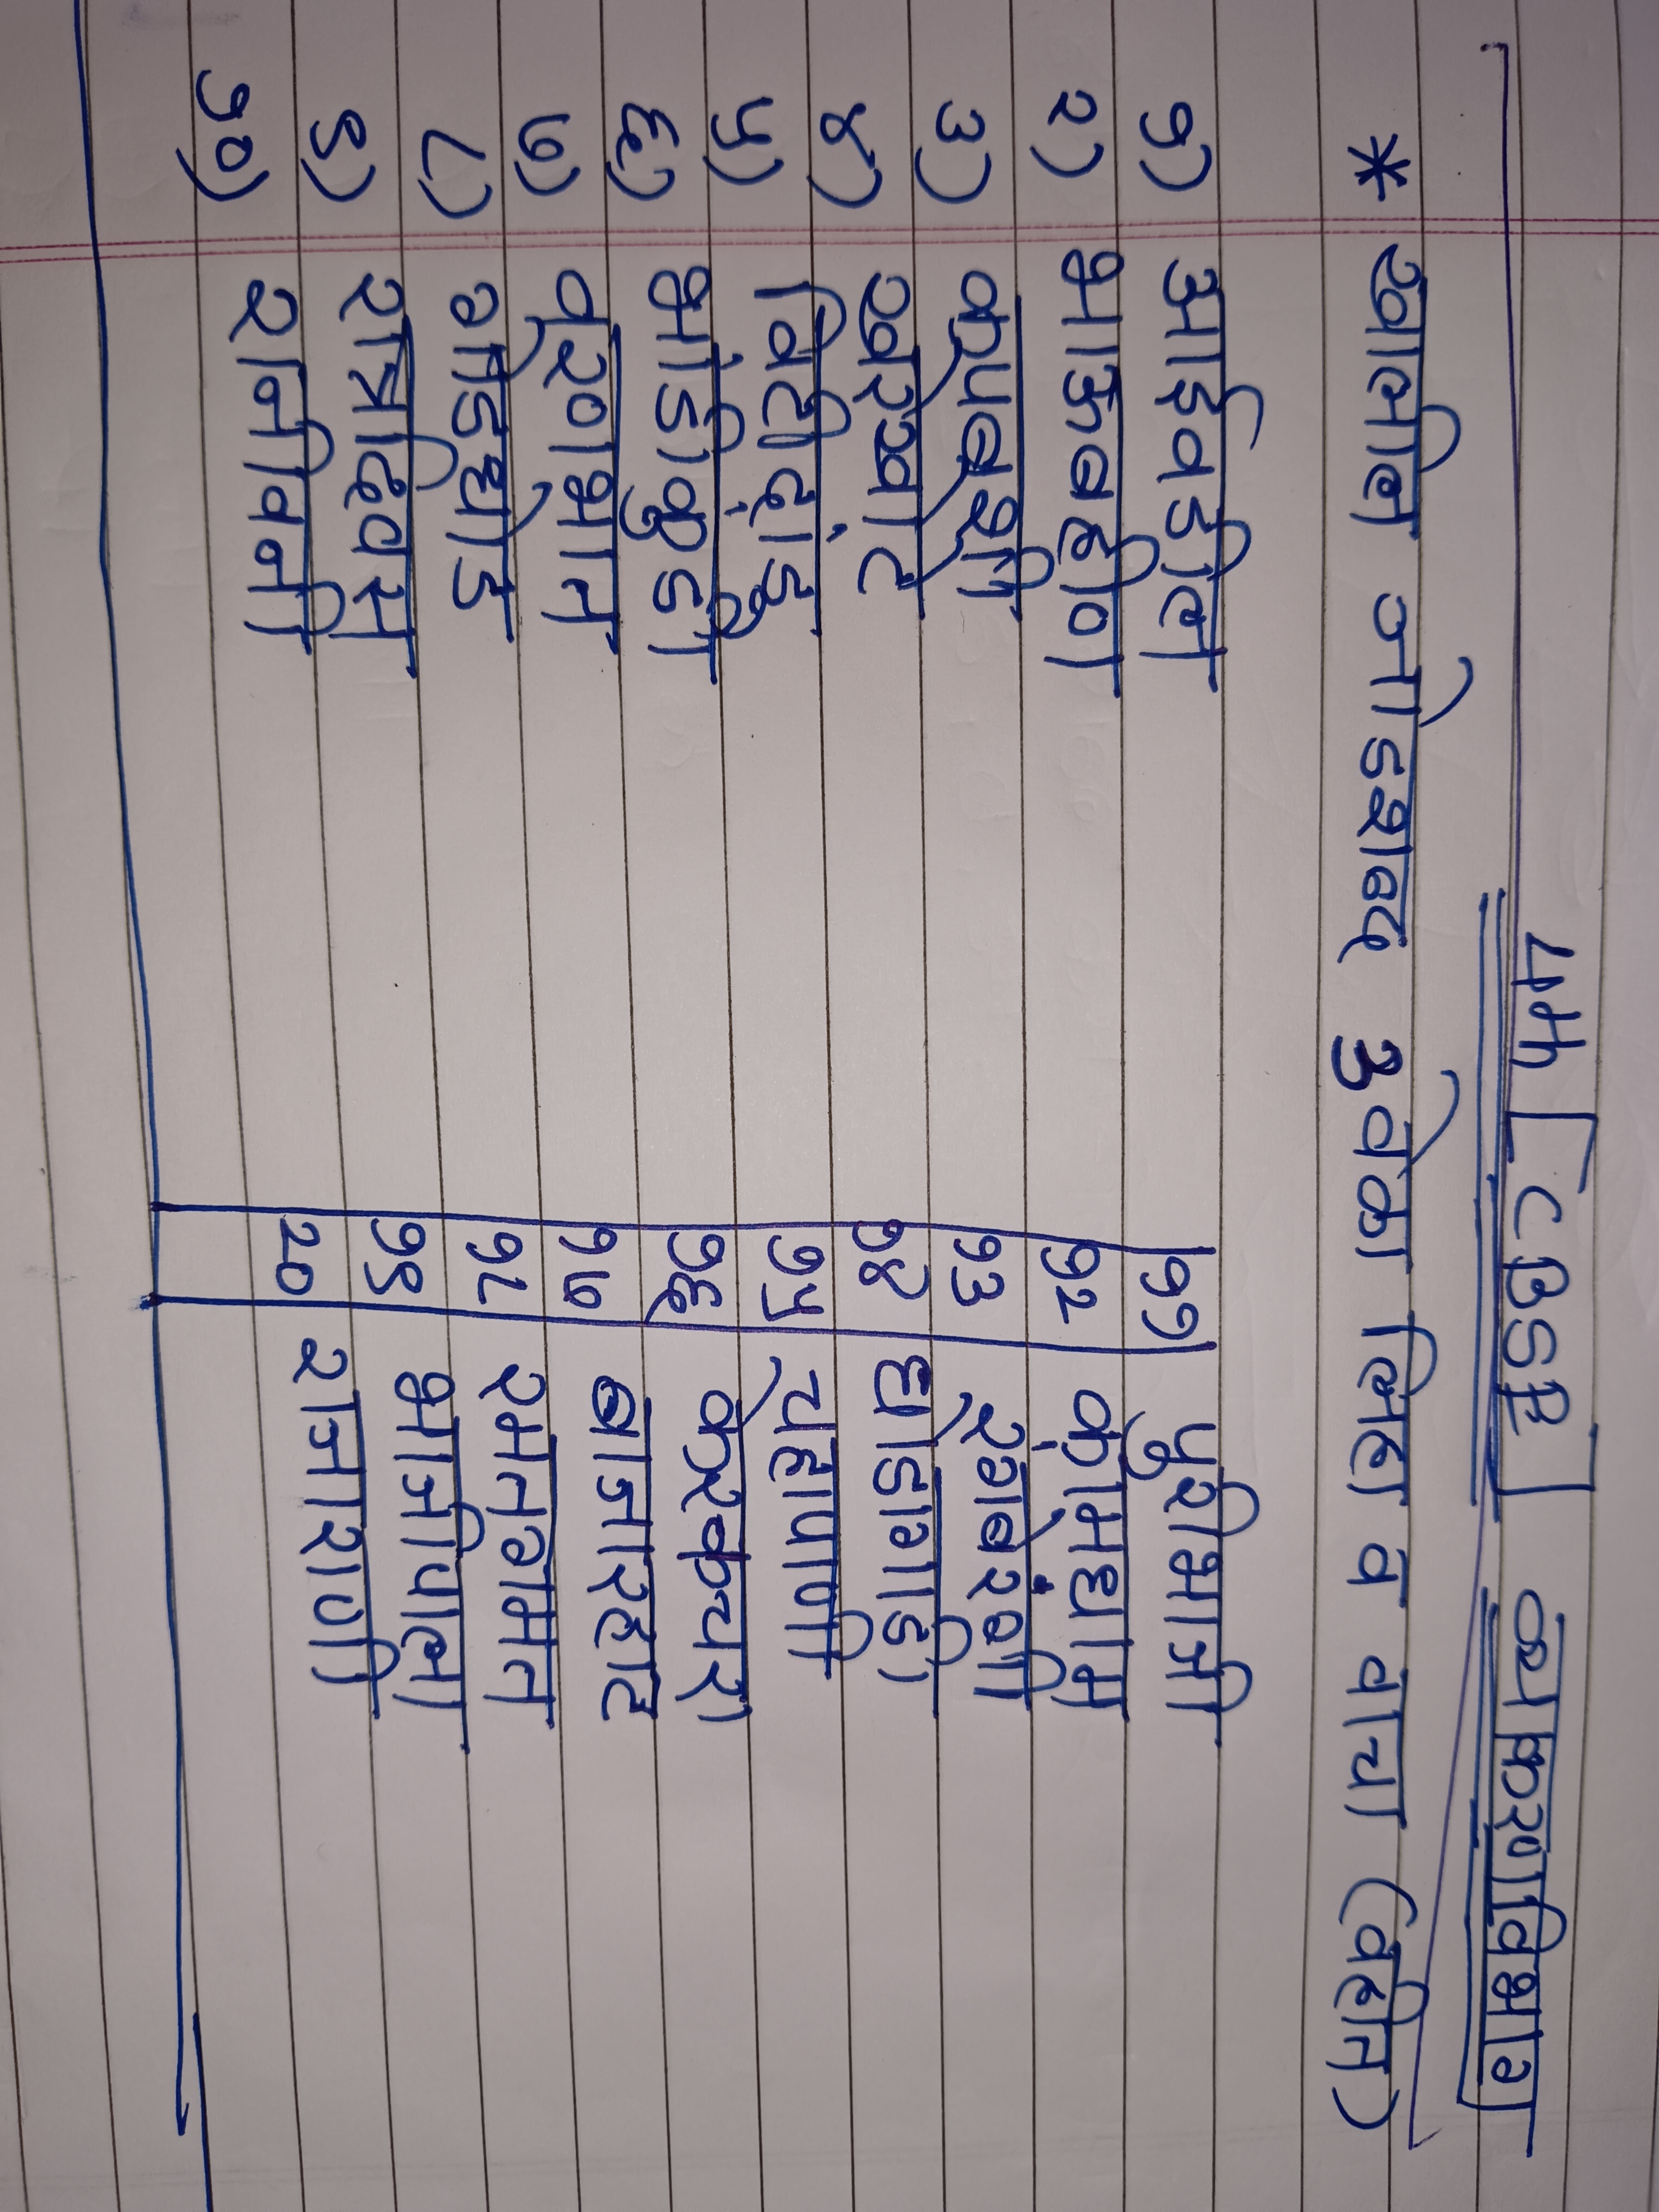 4th [CBSE] व्याकरण विभाग
* खालील जोडशब्द ३ वेळा लिहा व वाचा (वहीत)
१) आईवडील
२) भाऊबहीण
३) कपबशी
४) खरखोटं
५) विटीदांडू
६) भांडीकुंडी
७) वरणभात
८) गोडधोड
९) रात्रंदिवस
१०) रानीवनी
११ पुरीभाजी
१२ कामधाम
१३ रंगबेरंगी
१४ घोडागाडी
१५ चहापाणी
१६ केरकचरा
१७ बाजारहाट
१८ रमतगमत
१९ भाजीपाला
२० राजाराणी